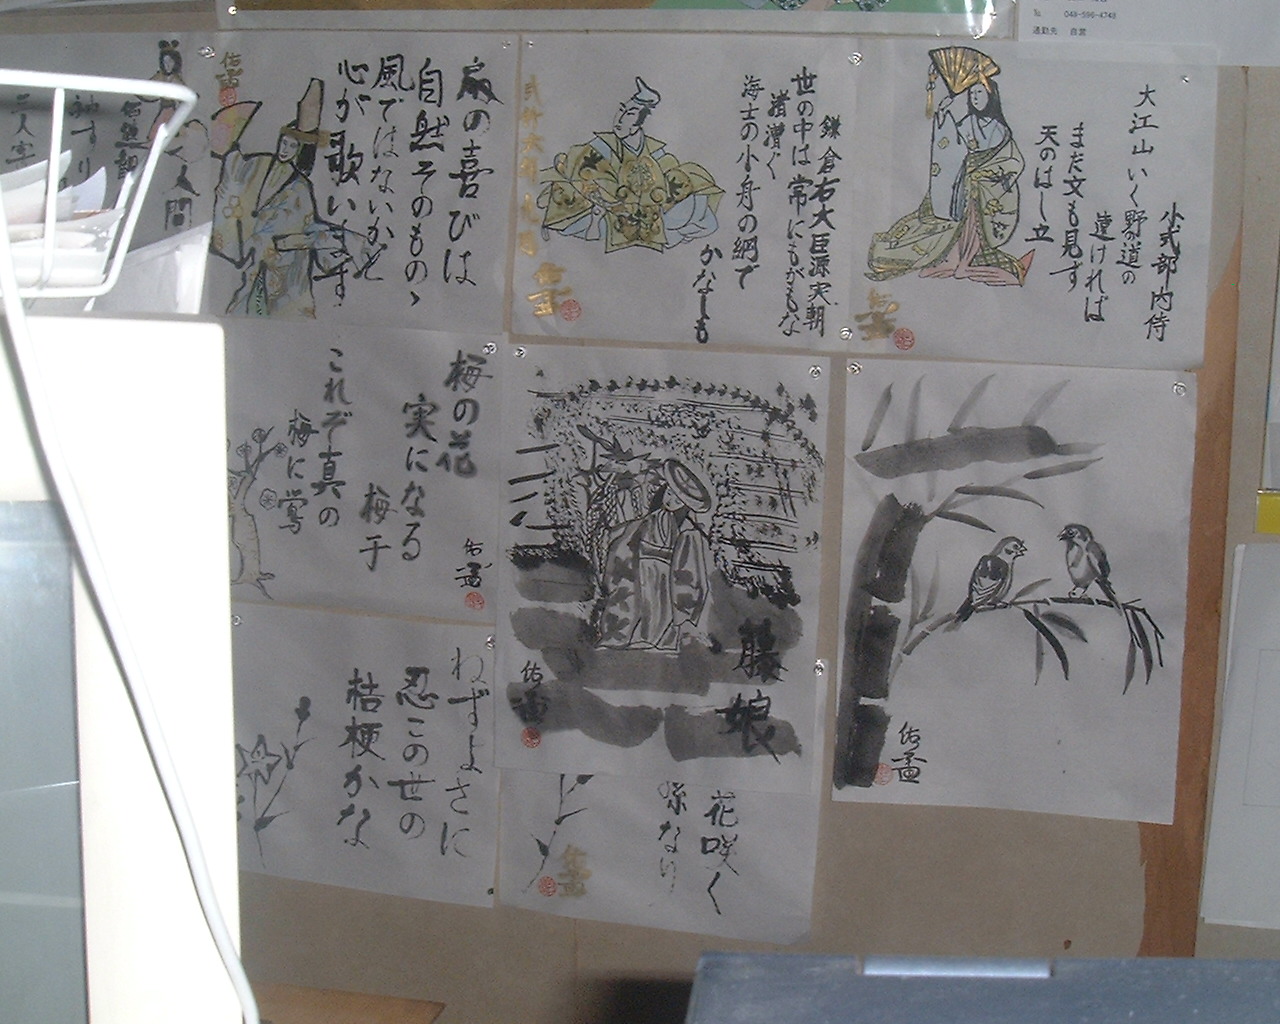 ℡ 048-596-4748
通勤先 自営
小式部内侍
大江山いく野の道の
遠ければ
まだ文も見ず
天のはし立
鎌倉右大臣源実朝
世の中は常にもがもな
渚漕ぐ
海士の小舟の綱で
かなしも
扇の喜びは
自然そのもの、
風ではないかと
心が歌います
人間
梅の花
実になる
梅干
これぞ真の
梅に鶯
佑孟
藤娘
佑孟
佑孟
ねずよさに
忍この世の
桔梗かな
花咲く